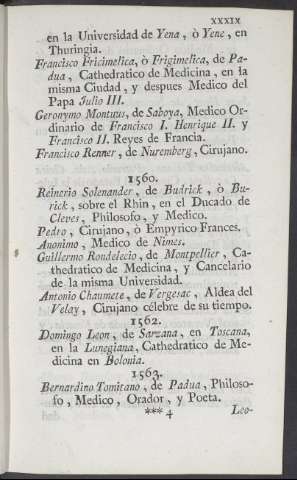 XXXIX
en la Universidad de Yena, ò Yene, en
Thuringia.
Francisco Fricimelica, ò Frigimelica, de Pa-
dua, Cathedratico de Medicina, en la
misma Ciudad, y despues Medico del
Papa Julio III.
Geronymo Montuus, de Saboya, Medico Or-
dinario de Francisco I. Henrique II. y
Francisco II. Reyes de Francia.
Francisco Renner, de Nuremberg, Cirujano.
1560.
Reinerio Solenander, de Budrick, ò Bu-
rick, sobre el Rhin, en el Ducado de
Cleves, Philosofo, y Medico.
Pedro, Cirujano, ò Empyrico Frances.
Anonimo, Medico de Nimes.
Guillermo Rondelecio, de Montpellier, Ca-
thedratico de Medicina, y Cancelario
de la misma Universidad.
Antonio Chaumete, de Vergesac, Aldea del
Velay, Cirujano célebre de su tiempo.
1562.
Domingo Leon, de Sarzana, en Toscana,
en la Lunegiana, Cathedratico de Me-
dicina en Bolonia.
1563.
Bernardino Tomitano, de Padua, Philoso-
fo, Medico, Orador, y Poeta.
*** 4 Leo-